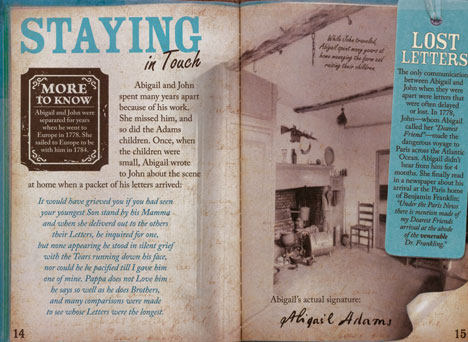 STAYING
in Touch
MORE
TO KNOW
Abigail and John were
separated for years
when he went to
Europe in 1778. She
sailed to Europe to be
with him in 1784.
Abigail and John
spent many years apart
because of his work.
She missed him, and
so did the Adams
children. Once, when
the children
were small,
Abigail wrote
to John about the scene
at home when a packet of his letters arrived:
It would have grieved you if you had seen
your youngest Son stand by his Mamma
and when she deliverd out to the others
their Letters, he inquired for one,
but none appearing he stood in silent grief
with the Tears running down his face,
nor could he be pacified till I gave him
one of mine. Pappa does not Love him
he says so well as he does Brothers,
and many comparisons were made
to see whose Letters were the longest.
14
While John traveled,
Abigail spent many years at
home managing the farm and
raising their children.
Abigail's actual signature:
Abigail Adams
LOST
LETTERS
The only communication
between Abigail and
John when they were
apart were letters that
were often delayed
or lost. In 1778,
John—whom Abigail
called her "Dearest
Friend"—made the
dangerous voyage to
Paris across the Atlantic
Ocean. Abigail didn't
hear from him for 4
months. She finally read
in a newspaper about his
arrival at the Paris home
of Benjamin Franklin:
"Under the Paris News
there is mention made of
my Dearest Friends
arrival at the abode
of the venerable
Dr. Frankling."
15